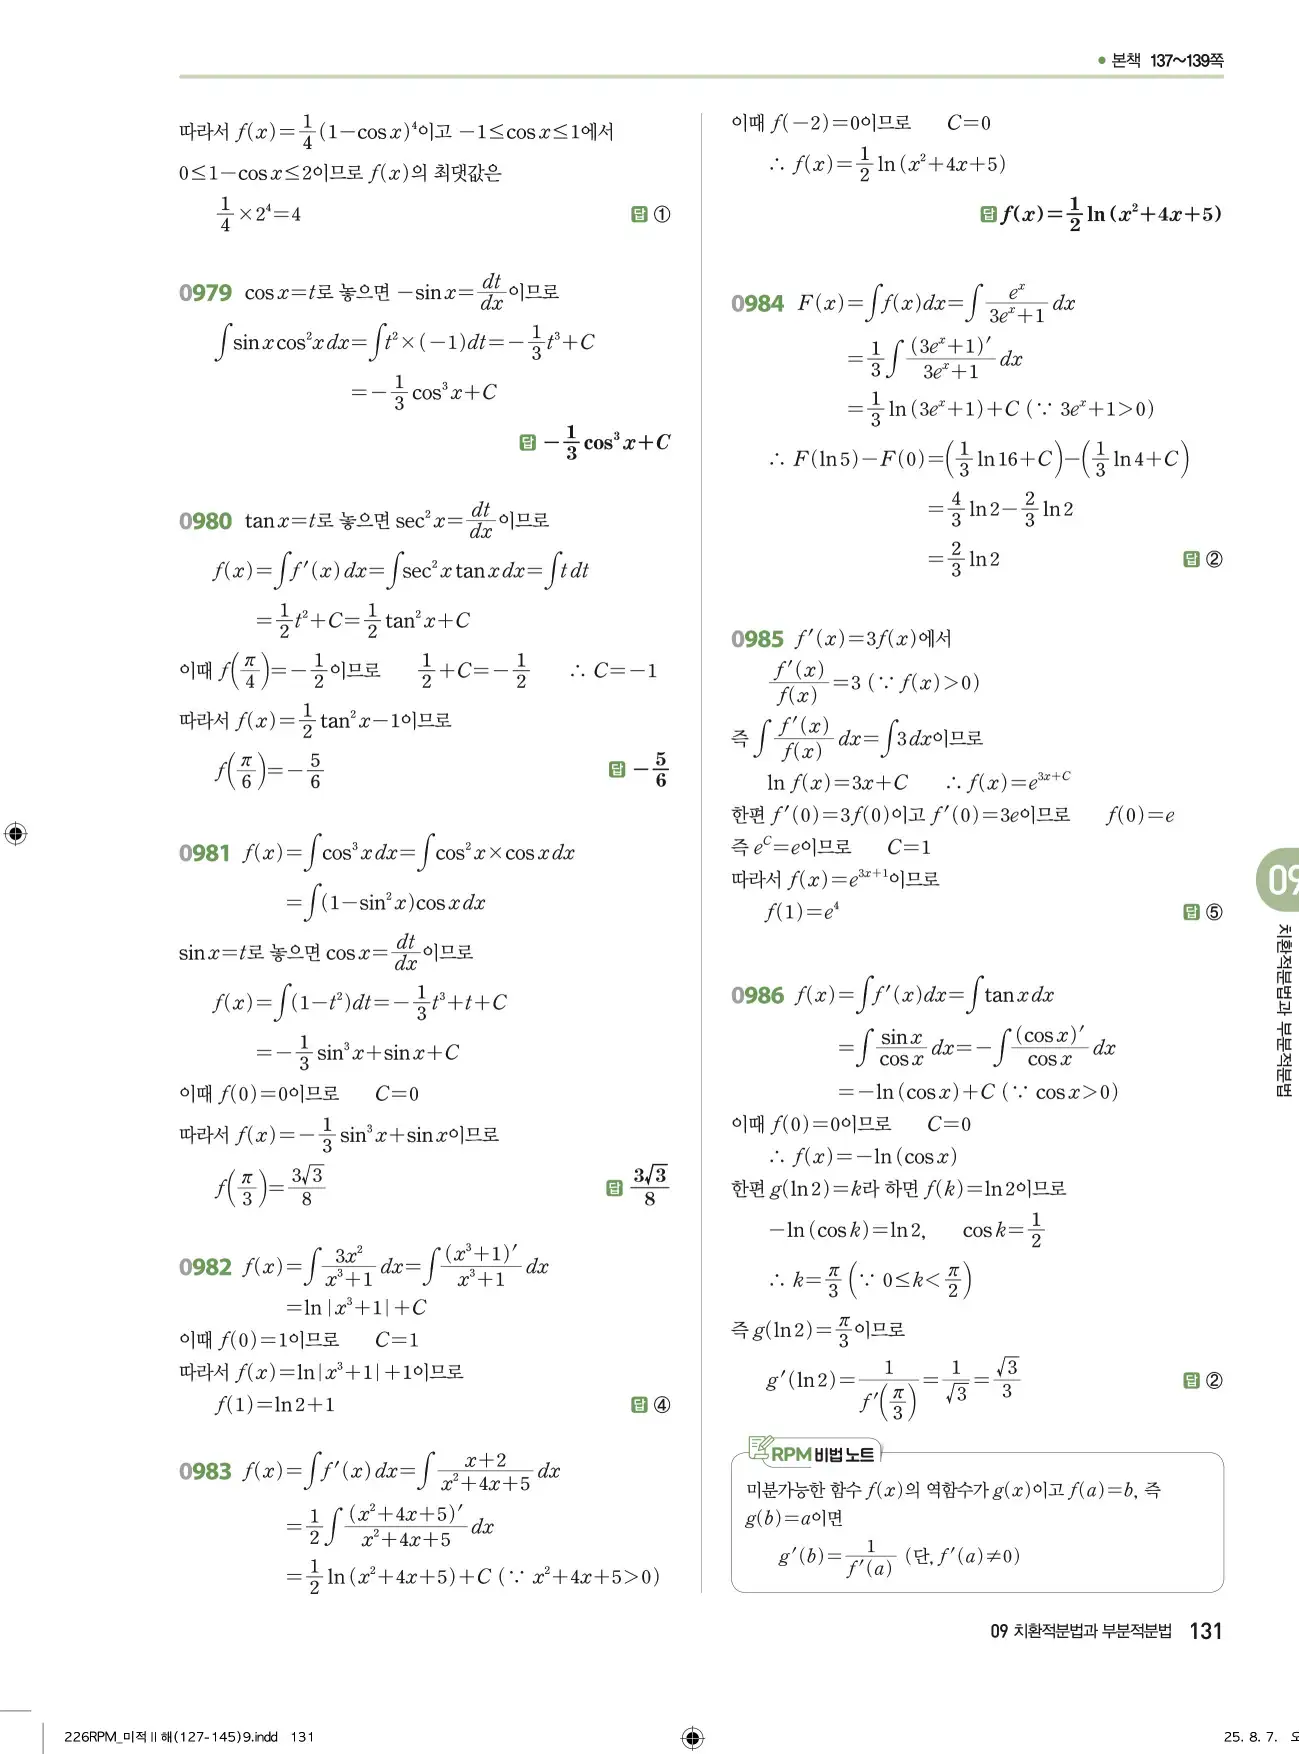 본책 137~139쪽
따라서 f(x)=1/4(1-cos x)⁴이고 -1≤cos x≤1에서
0≤1-cos x≤2이므로 f(x)의 최댓값은
1/4×2⁴=4 답 ①
0979 cos x=t로 놓으면 -sin x=dt/dx이므로
∫sin x cos²x dx=∫t²×(-1)dt=-1/3t³+C
=-1/3cos³x+C
답 -1/3cos³x+C
0980 tan x=t로 놓으면 sec²x=dt/dx이므로
f(x)=∫f′(x)dx=∫sec²x tan x dx=∫t dt
=1/2t²+C=1/2tan²x+C
이때 f(π/4)=-1/2이므로 1/2+C=-1/2 ∴ C=-1
따라서 f(x)=1/2tan²x-1이므로
f(π/6)=-5/6 답 -5/6
0981 f(x)=∫cos³x dx=∫cos²x×cos x dx
=∫(1-sin²x)cos x dx
sin x=t로 놓으면 cos x=dt/dx이므로
f(x)=∫(1-t²)dt=-1/3t³+t+C
=-1/3sin³x+sin x+C
이때 f(0)=0이므로 C=0
따라서 f(x)=-1/3sin³x+sin x이므로
f(π/3)=3√3/8 답 3√3/8
0982 f(x)=∫3x²/(x³+1)dx=∫(x³+1)′/(x³+1)dx
=ln|x³+1|+C
이때 f(0)=1이므로 C=1
따라서 f(x)=ln|x³+1|+1이므로
f(1)=ln2+1 답 ④
0983 f(x)=∫f′(x)dx=∫(x+2)/(x²+4x+5)dx
=1/2∫(x²+4x+5)′/(x²+4x+5)dx
=1/2ln(x²+4x+5)+C (∵ x²+4x+5>0)
이때 f(-2)=0이므로 C=0
∴ f(x)=1/2ln(x²+4x+5)
답 f(x)=1/2ln(x²+4x+5)
0984 F(x)=∫f(x)dx=∫eˣ/(3eˣ+1)dx
=1/3∫(3eˣ+1)′/(3eˣ+1)dx
=1/3ln(3eˣ+1)+C (∵ 3eˣ+1>0)
∴ F(ln5)-F(0)=(1/3ln16+C)-(1/3ln4+C)
=4/3ln2-2/3ln2
=2/3ln2 답 ②
0985 f′(x)=3f(x)에서
f′(x)/f(x)=3 (∵ f(x)>0)
즉 ∫f′(x)/f(x)dx=∫3dx이므로
ln f(x)=3x+C ∴ f(x)=e^(3x+C)
한편 f′(0)=3f(0)이고 f′(0)=3e이므로 f(0)=e
즉 e^C=e이므로 C=1
따라서 f(x)=e^(3x+1)이므로
f(1)=e⁴ 답 ⑤
0986 f(x)=∫f′(x)dx=∫tan x dx
=∫sin x/cos x dx=-∫(cos x)′/cos x dx
=-ln(cos x)+C (∵ cos x>0)
이때 f(0)=0이므로 C=0
∴ f(x)=-ln(cos x)
한편 g(ln2)=k라 하면 f(k)=ln2이므로
-ln(cos k)=ln2, cos k=1/2
∴ k=π/3 (∵ 0≤k<π/2)
즉 g(ln2)=π/3이므로
g′(ln2)=1/f′(π/3)=1/√3=√3/3 답 ②
RPM 비법 노트
미분가능한 함수 f(x)의 역함수가 g(x)이고 f(a)=b, 즉
g(b)=a이면
g′(b)=1/f′(a) (단, f′(a)≠0)
09
치환적분법과 부분적분법
09 치환적분법과 부분적분법 131
226RPM_미적Ⅱ해(127-145)9.indd 131
25. 8. 7.